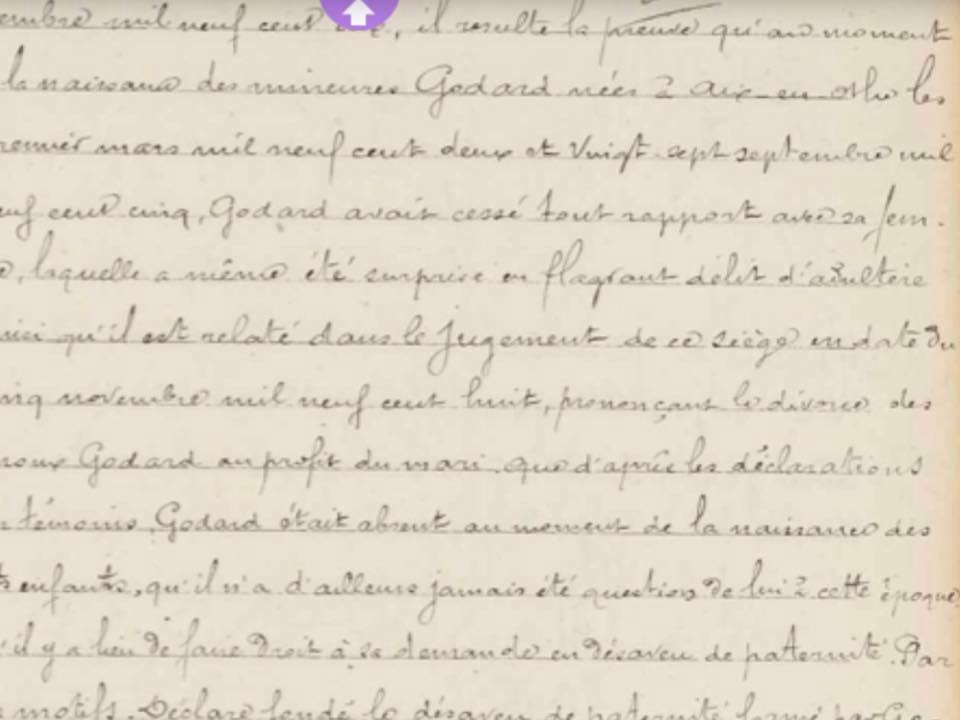 embre mil neuf cent , il resulte la preuve qu'au moment
la naissance des mineures Godard nées à Aix-en-Othe les
remier mars mil neuf cent deux et Vingt sept septembre mil
euf cent cinq, Godard avait cessé tout rapport avec sa fem-
e, laquelle a même été surprise en flagrant délit d'adultère
insi qu'il est relaté dans le Jugement de ce siège en date du
inq novembre mil neuf cent huit, prononçant le divorce des
poux Godard au profit du mari. que d'après les déclarations
s témoins, Godard était absent au moment de la naissance des
ts enfants, qu'il n'a d'ailleurs jamais été question de lui à cette époque
'il y a lieu de faire droit à sa demande en désaveu de paternité. Par
s motifs. Déclare fondé le désaveu de paternité formé par Go